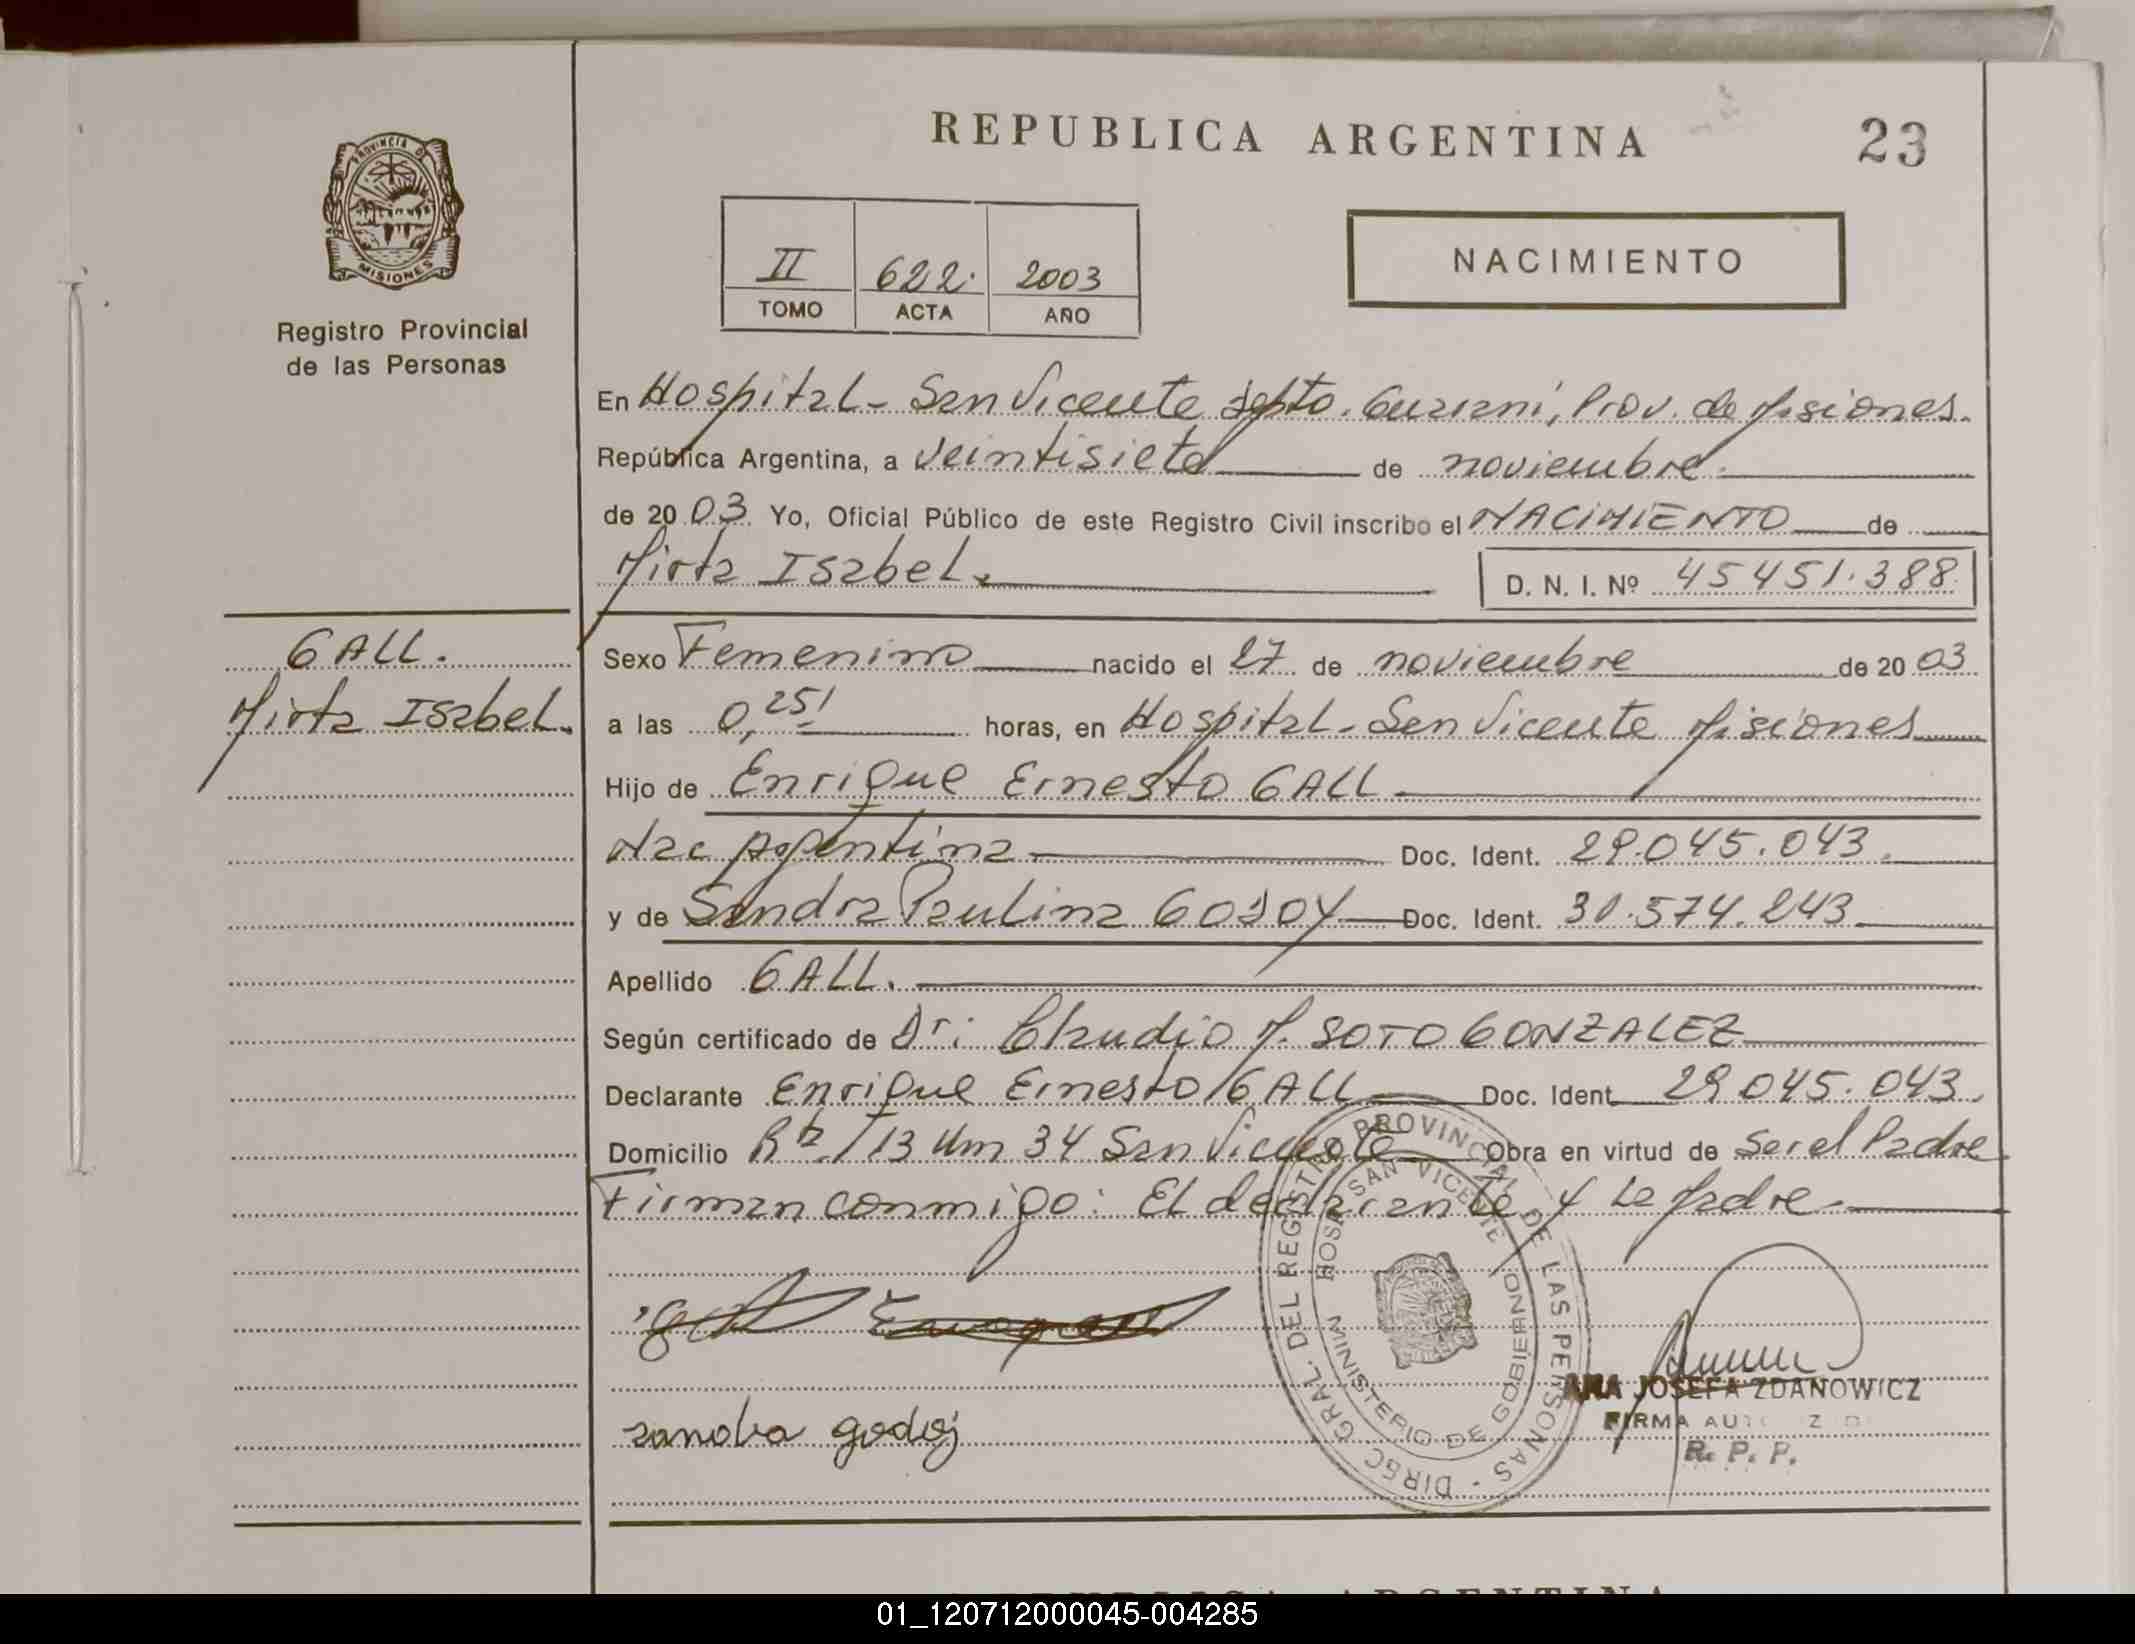 REPUBLICA ARGENTINA
23
PROVINCIA DE
MISIONES
Registro Provincial
de las Personas
II 622. 2003
TOMO ACTA AÑO
NACIMIENTO
En Hospital - San Vicente Dpto. Guarani, Prov. de Misiones.
República Argentina, a veintisiete de noviembre.
de 2003. Yo, Oficial Público de este Registro Civil inscribo el NACIMIENTO de
Mirta Isabel.
D. N. I. Nº 45451.388
GALL.
Mirta Isabel.
Sexo Femenino nacido el 27 de noviembre de 2003
a las 0,25' horas, en Hospital - San Vicente Misiones
Hijo de Enrique Ernesto GALL
Nac Argentina Doc. Ident. 29.045.043.
y de Sandra Paulina GODOY Doc. Ident. 30.574.243
Apellido GALL.
Según certificado de Dr: Claudio M. SOTO GONZALEZ
Declarante Enrique Ernesto GALL Doc. Ident. 29 045.043.
Domicilio Rta 13 Km 34 San Vicente Obra en virtud de Ser el Padre
Firman conmigo: El declarante y la Madre.
DIREC GRAL. DEL REGISTRO PROVINCIAL DE LAS PERSONAS
HOSP SAN VICENTE
MINISTERIO DE GOBIERNO
sandra godoj
ANA JOSEFA ZDANOWICZ
FIRMA
R. P. P.
REPUBLICA ARGENTINA
01_120712000045-004285